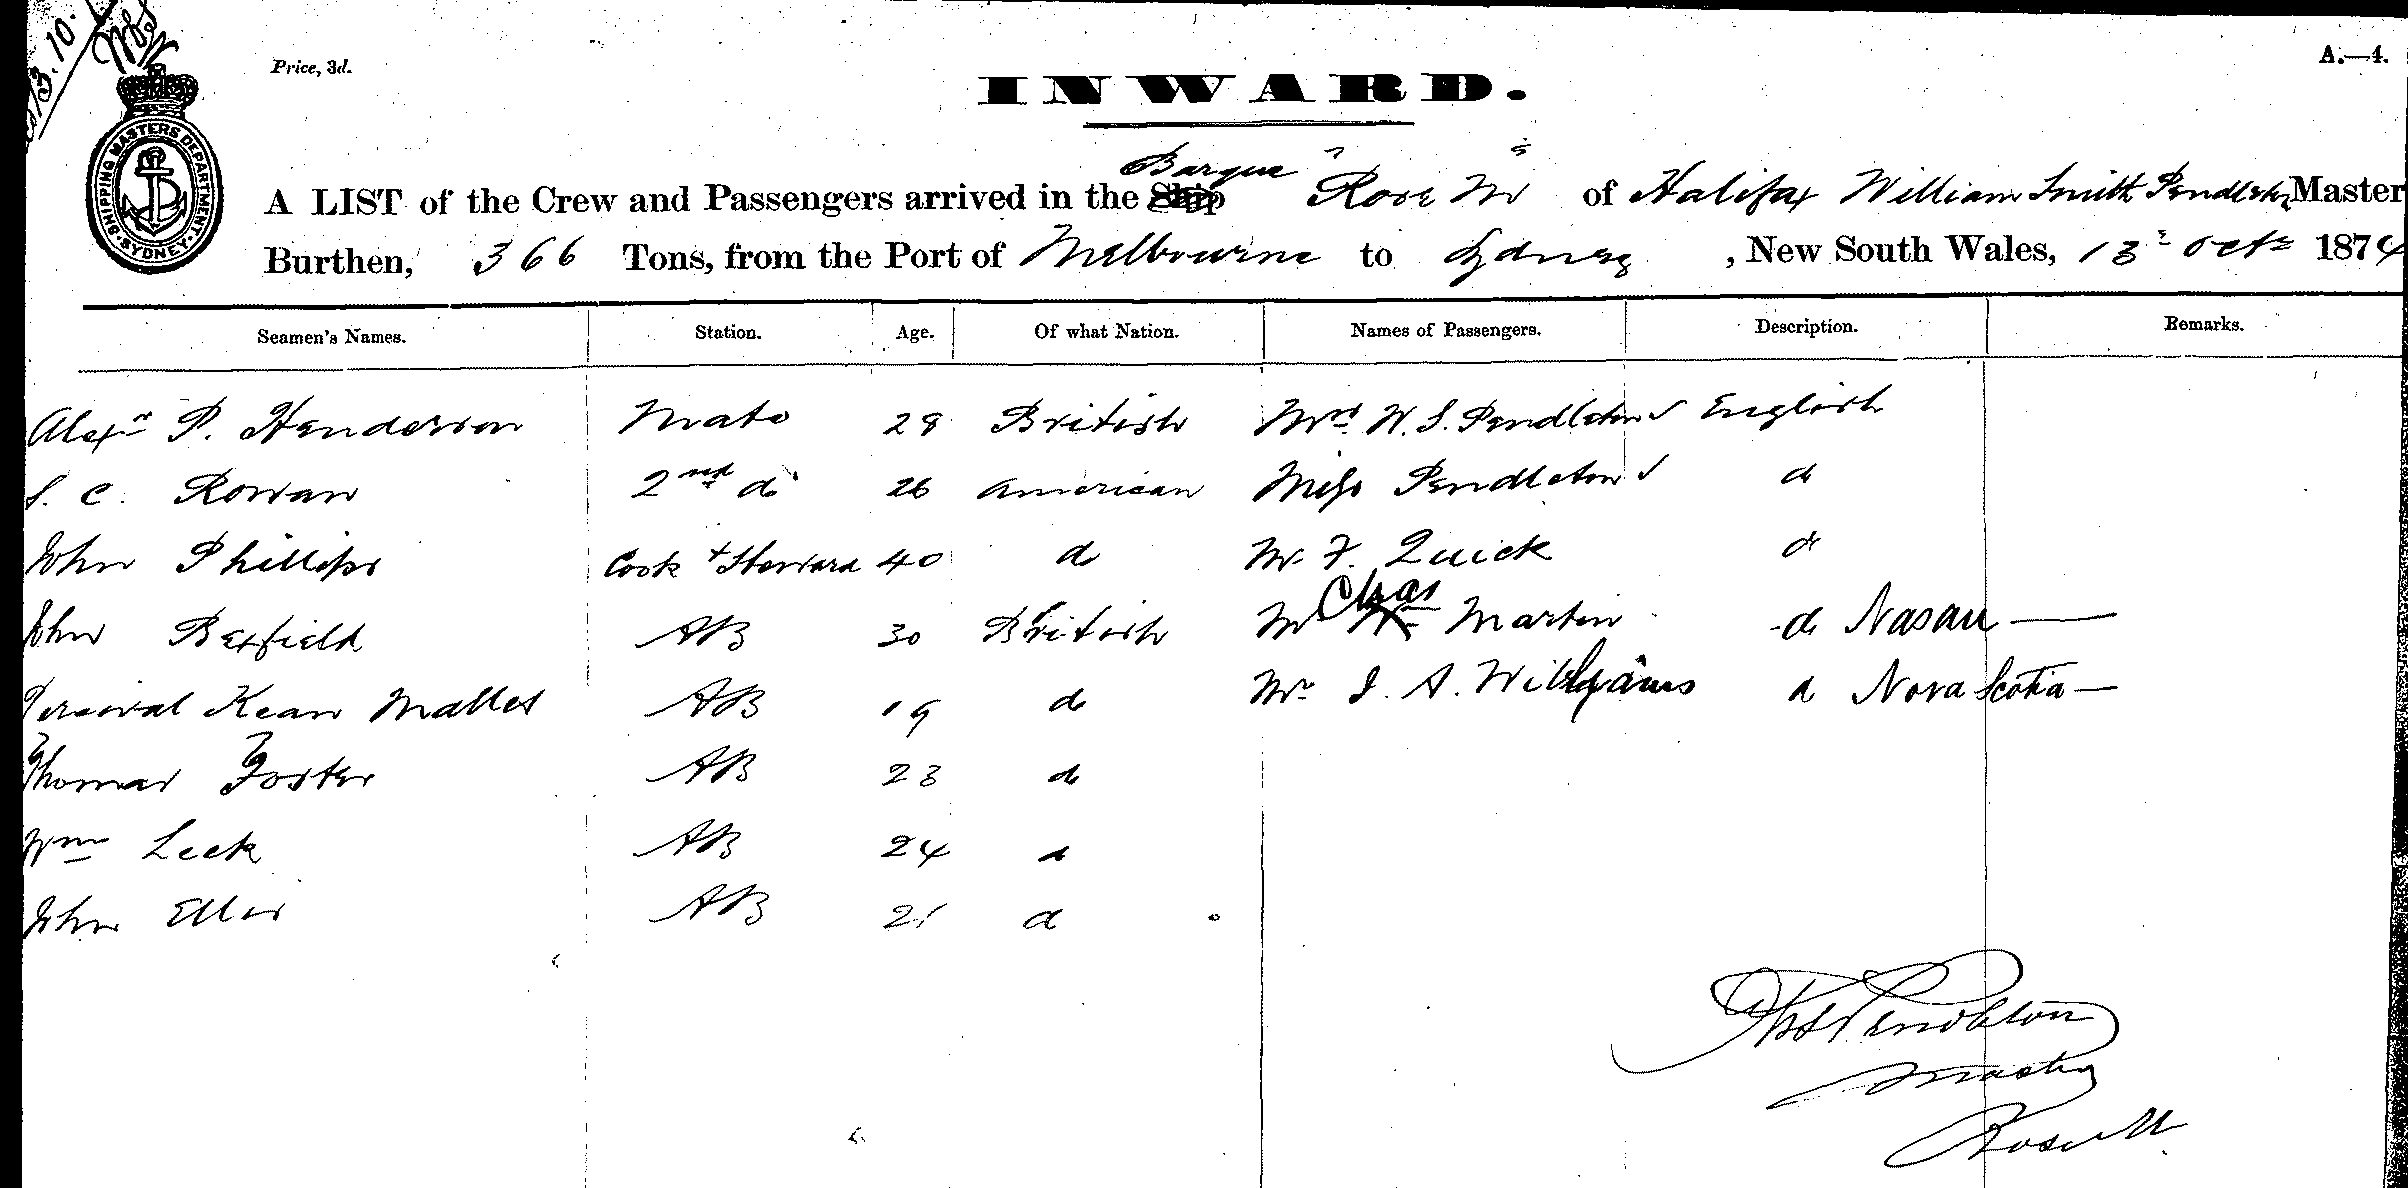 13.10.
Price, 3d.
A.—4.
INWARD.
SHIPPING MASTERS DEPARTMENT. SYDNEY.
A LIST of the Crew and Passengers arrived in the Barque Rose M of Halifax William Smith Pendleton Master
Burthen, 366 Tons, from the Port of Melbourne to Sydney, New South Wales, 13 Oct 1874
Seamen's Names. Station. Age. Of what Nation. Names of Passengers. Description. Remarks.
Alexr P. Henderson Mate 28 British Mrs W. S. Pendleton English
S. C. Rowan 2nd do 26 American Miss Pendleton do
John Phillips Cook + Steward 40 do Mr F. Quick do
John Bexfield AB 30 British Mr Chas Martin do Nasau —
Percival Kean Mallet AB 19 do Mr J. A. Williams do Nova Scotia —
Thomas Foster AB 23 do
Wm Leek AB 24 do
John Ellis AB 21 do
WS Pendleton
Master
Rose M